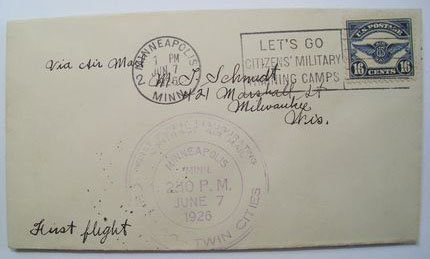 MINNEAPOLIS
1 PM
JUN 7
MINN.
2
LET'S GO
CITIZENS' MILITARY
TRAINING CAMPS
U.S. POSTAGE
16 CENTS 16
Via Air Mail
M. J. Schmidt
421 Marshall St
Milwaukee
Wis.
MINNEAPOLIS
MINN.
2:30 P.M.
JUNE 7
1926
TWIN CITIES
First flight